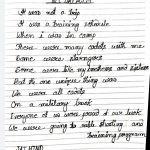 It was not a trip
It was a training schedule
When I was in camp
There were many cadets with me
Some were strangers
Some were like my brothers and sisters
But the one unique thing was
We were all cadets
On a military book
Everyone of us were proud of our look
We were going to rifle shooting and
training program
JAI HIND